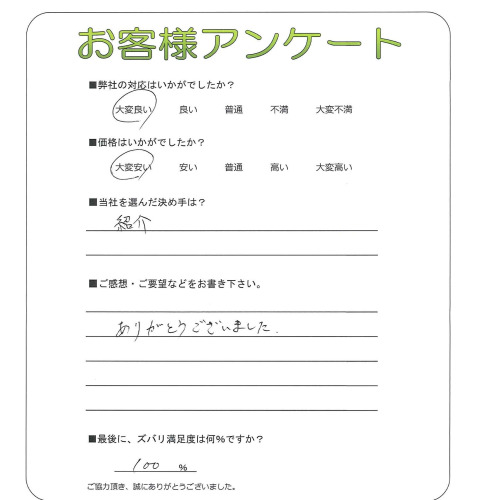 お客様アンケート
■弊社の対応はいかがでしたか？
大変良い 良い 普通 不満 大変不満
■価格はいかがでしたか？
大変安い 安い 普通 高い 大変高い
■当社を選んだ決め手は？
紹介
■ご感想・ご要望などをお書き下さい。
ありがとうございました.
■最後に、ズバリ満足度は何%ですか？
100 %
ご協力頂き、誠にありがとうございました。